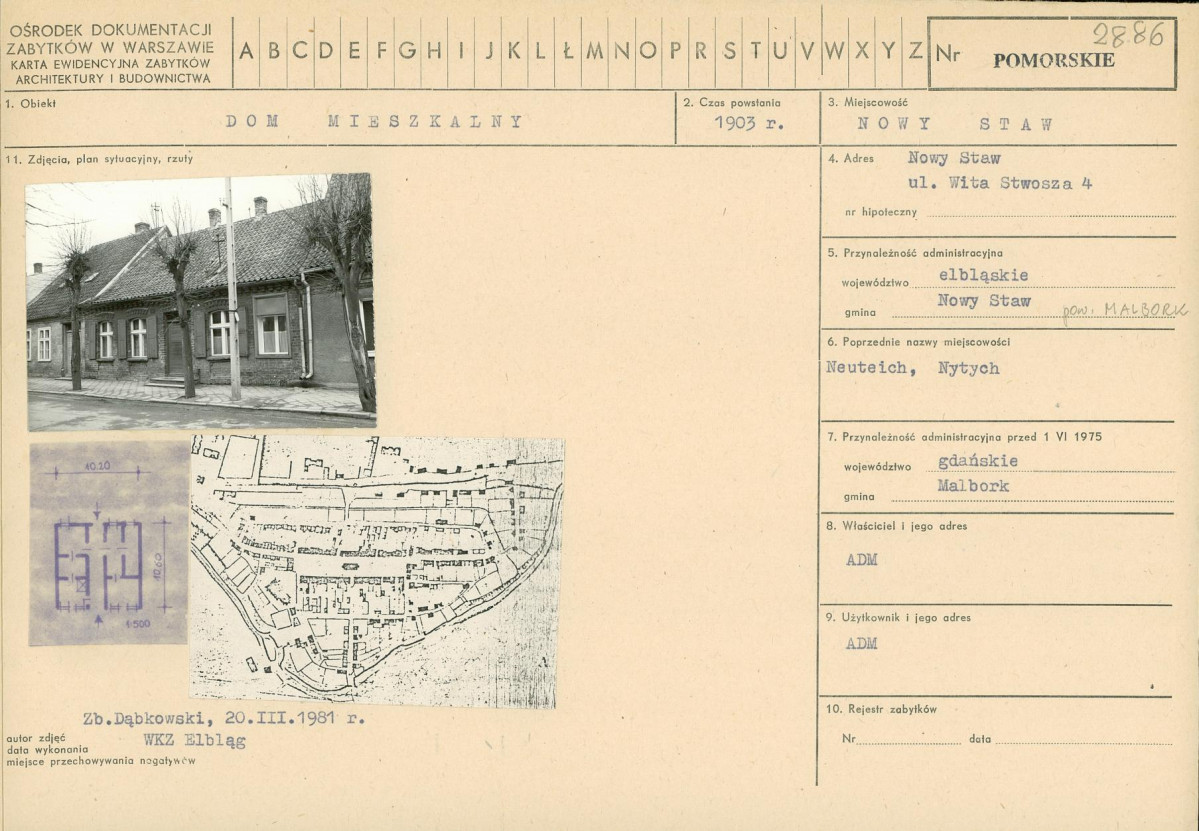 OŚRODEK DOKUMENTACJI
ZABYTKÓW W WARSZAWIE
KARTA EWIDENCYJNA ZABYTKÓW
ARCHITEKTURY I BUDOWNICTWA
A B C D E F G H I J K L Ł M N O P R S T U V W X Y Z
Nr
28.86
POMORSKIE
1. Obiekt
DOM MIESZKALNY
2. Czas powstania
1903 r.
3. Miejscowość
NOWY STAW
11. Zdjęcia, plan sytuacyjny, rzuty
4. Adres Nowy Staw
ul. Wita Stwosza 4
nr hipoteczny
5. Przynależność administracyjna
województwo elbląskie
gmina Nowy Staw pow. MALBORK
6. Poprzednie nazwy miejscowości
Neuteich, Nytych
7. Przynależność administracyjna przed 1 VI 1975
województwo gdańskie
gmina Malbork
8. Właściciel i jego adres
ADM
9. Użytkownik i jego adres
ADM
10. Rejestr zabytków
Nr data
10.20
10.60
1:500
Zb.Dąbkowski, 20.III.1981 r.
WKZ Elbląg
autor zdjęć
data wykonania
miejsce przechowywania negatywów